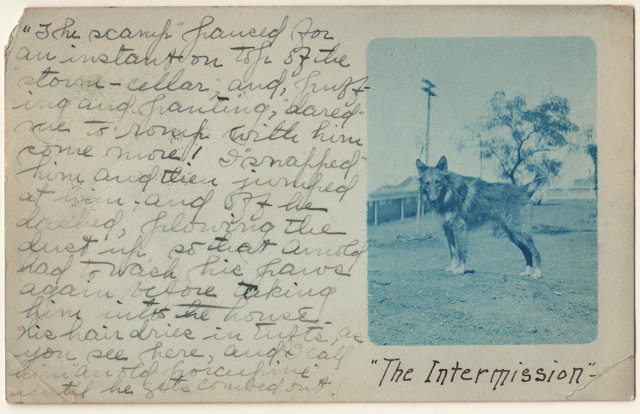 "The scamp" paused for
an instant on top of the
storm-cellar, and, puff-
ing and panting, dared
me to romp with him
some more! I "snapped"
him and then jumped
at him - and off he
dashed, plowing the
dust up so that Arnold
had to wash his paws
again before taking
him into the house.
His hair dries in tufts, as
you see here, and I call
him an old porcupine
until he gets combed out!
"The Intermission"-